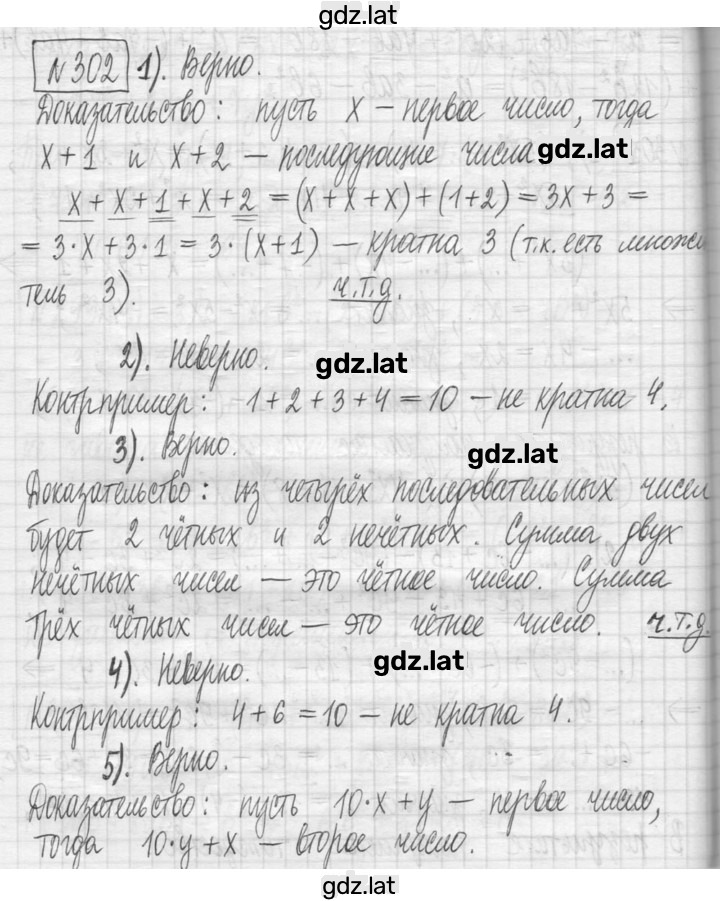 gdz.lat
№302 1). Верно.
Доказательство: пусть x – первое число, тогда
x+1 и x+2 – последующие числа gdz.lat
x+x+1+x+2 = (x+x+x)+(1+2) = 3x+3 =
= 3·x+3·1 = 3·(x+1) – кратна 3 (т.к. есть множи
тель 3). ч.т.д.
2). Неверно.
gdz.lat
Контрпример: 1+2+3+4=10 – не кратна 4.
3). Верно.
gdz.lat
Доказательство: из четырёх последовательных чисел
будет 2 чётных и 2 нечётных. Сумма двух
нечётных чисел – это чётное число. Сумма
трёх чётных чисел – это чётное число. ч.т.д.
4). Неверно.
gdz.lat
Контрпример: 4+6=10 – не кратна 4.
5). Верно.
Доказательство: пусть 10·x+y – первое число,
тогда 10·y+x – второе число.
gdz.lat